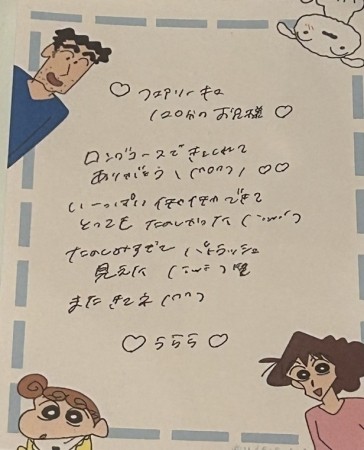 ♡ フェアリーキュ
120分の お兄様 ♡
ロングコースできてくれて
ありがとう \(^o^)/ ♡♡
いーっぱい イチャイチャできて
とっても たのしかった (´ω｀)
たのしみすぎて パトラッシュ
見えた (´ω｀)
また きてネ (^^)
♡ ららら ♡